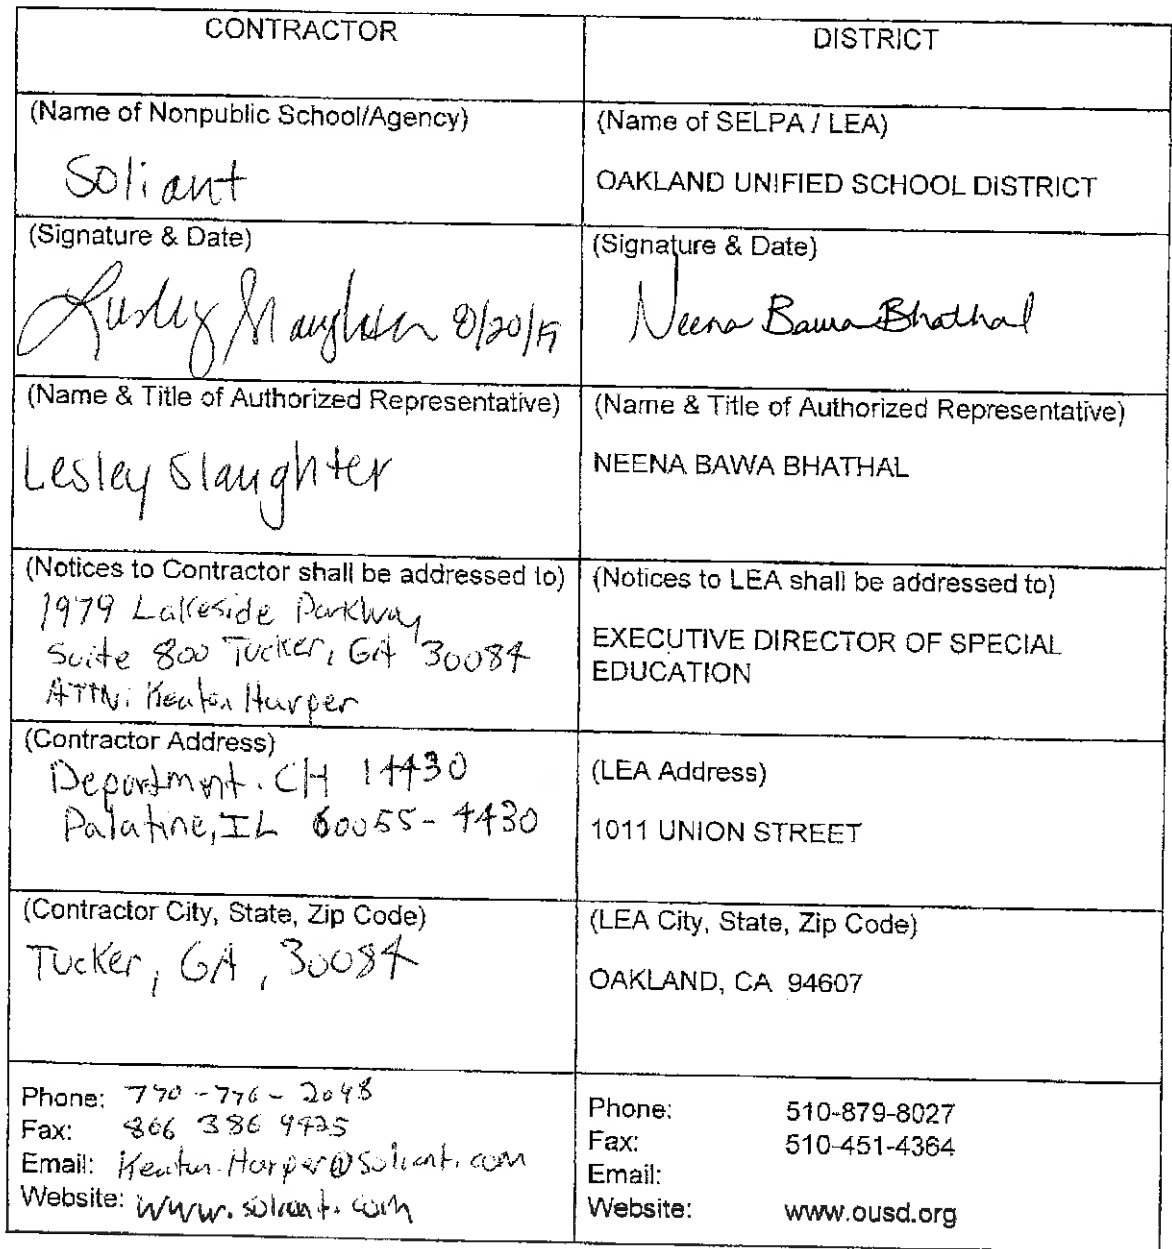 CONTRACTOR
DISTRICT
(Name of Nonpublic School/Agency)
Soliant
(Name of SELPA / LEA)
OAKLAND UNIFIED SCHOOL DISTRICT
(Signature & Date)
Lesley Slaughter 8/20/19
(Signature & Date)
Neena Bawa Bhathal
(Name & Title of Authorized Representative)
Lesley Slaughter
(Name & Title of Authorized Representative)
NEENA BAWA BHATHAL
(Notices to Contractor shall be addressed to)
1979 Lakeside Parkway
Suite 800 Tucker, GA 30084
ATTN: Keaton Harper
(Notices to LEA shall be addressed to)
EXECUTIVE DIRECTOR OF SPECIAL
EDUCATION
(Contractor Address)
Department. CH 14430
Palatine, IL 60055-4430
(LEA Address)
1011 UNION STREET
(Contractor City, State, Zip Code)
Tucker, GA, 30084
(LEA City, State, Zip Code)
OAKLAND, CA 94607
Phone: 770-776-2048
Fax: 866 386 9425
Email: Keaton.Harper@Soliant.com
Website: www.soliant.com
Phone: 510-879-8027
Fax: 510-451-4364
Email:
Website: www.ousd.org